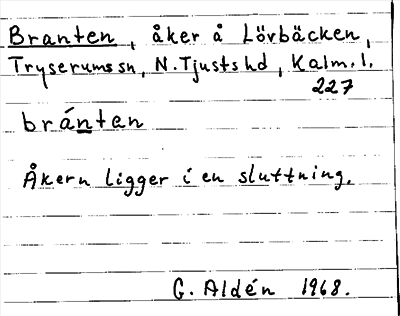 Branten, åker å Lövbäcken,
Tryserums sn, N. Tjusts hd, Kalm. l.
227
bránten
Åkern ligger i en sluttning.
G. Aldén 1968.